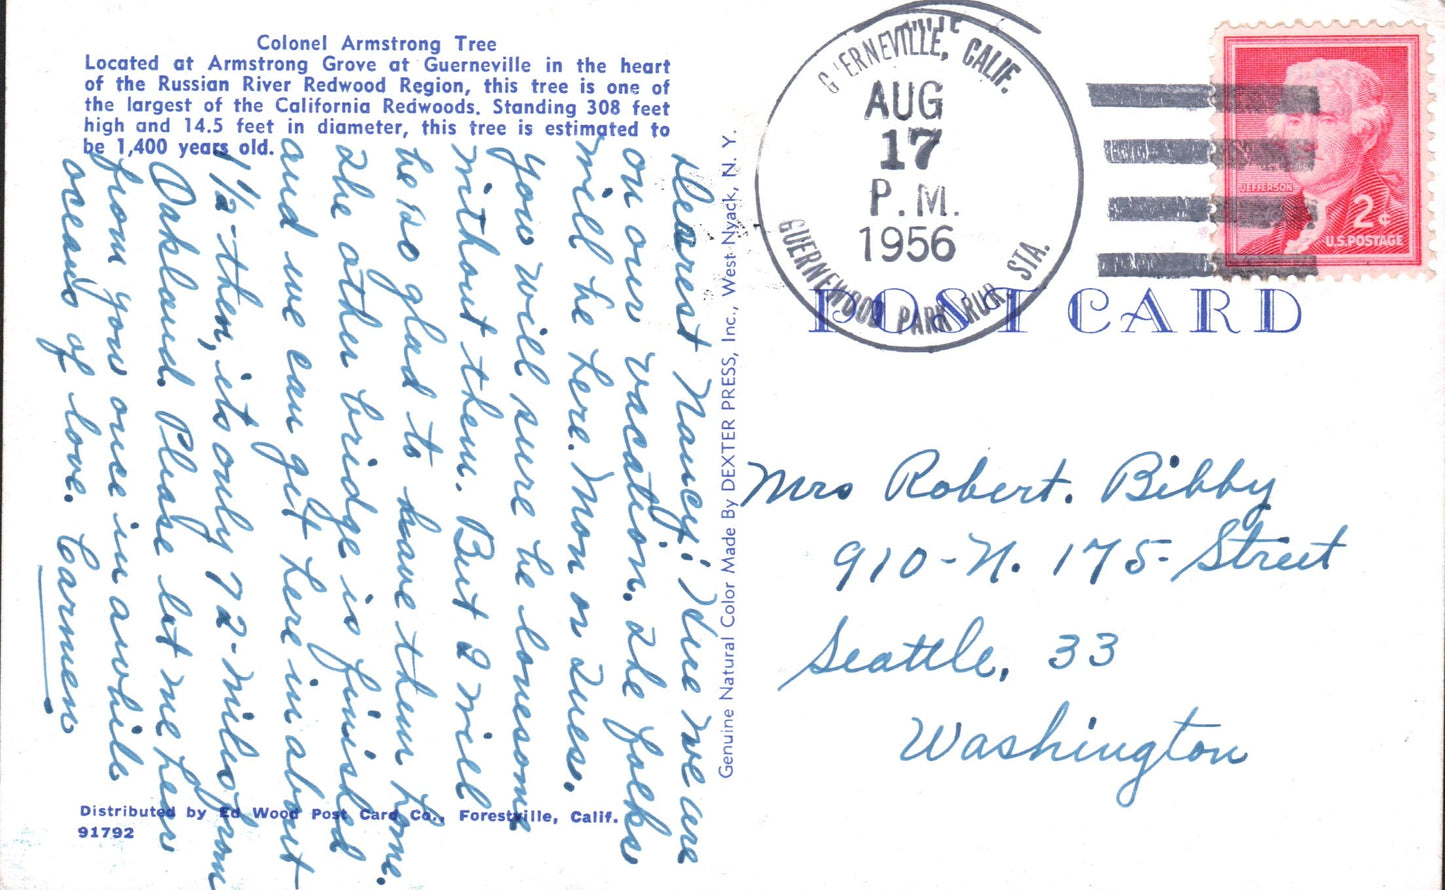 Colonel Armstrong Tree
Located at Armstrong Grove at Guerneville in the heart
of the Russian River Redwood Region, this tree is one of
the largest of the California Redwoods. Standing 308 feet
high and 14.5 feet in diameter, this tree is estimated to
be 1,400 years old.
Dearest Nancy: Here we are
on our vacation. The folks
will be here. Mon or Tues.
You will sure be lonesome
without them. But I will
be so glad to have them home.
The other bridge is finished
and we can get here in about
1 1/2 - then, its only 72 - miles from
Oakland. Please let me hear
from you once in awhile
oceans of love. Carmen
Distributed by Ed Wood Post Card Co., Forestville, Calif.
91792
Genuine Natural Color Made By DEXTER PRESS, Inc., West Nyack, N. Y.
GUERNEVILLE, CALIF.
AUG
17
P.M.
1956
GUERNEWOOD PARK RUR. STA.
JEFFERSON
2¢
U.S. POSTAGE
POST CARD
Mrs Robert. Bibby
910-N. 175- Street
Seattle, 33
Washington